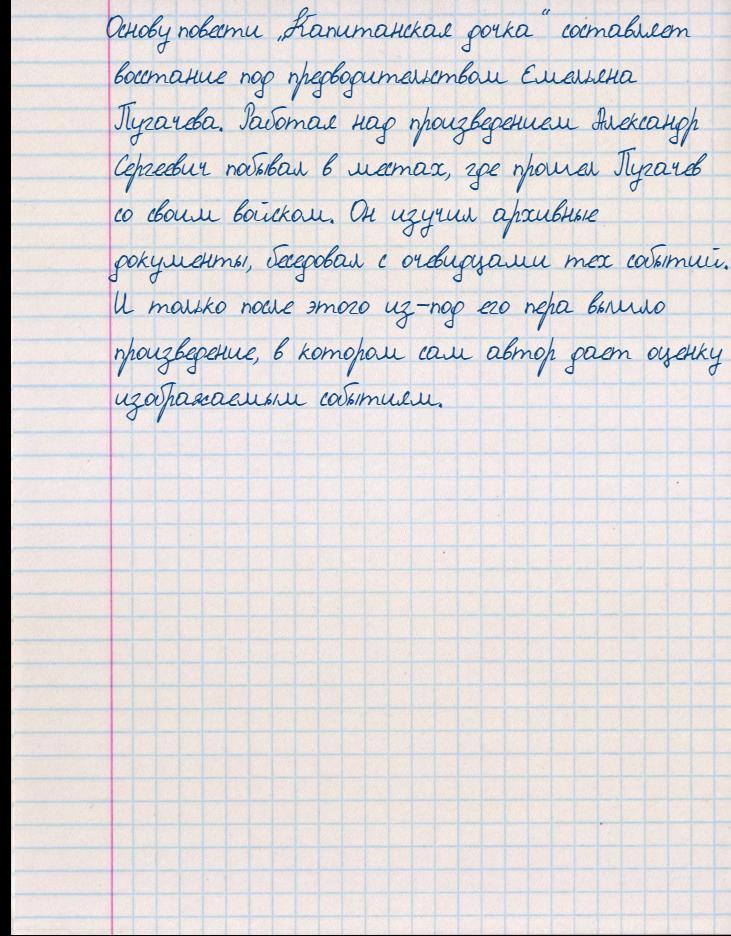 Основу повести „Капитанская дочка“ составляет
восстание под предводительством Емельяна
Пугачева. Работая над произведением Александр
Сергеевич побывал в местах, где прошел Пугачев
со своим войском. Он изучил архивные
документы, беседовал с очевидцами тех событий.
И только после этого из-под его пера вышло
произведение, в котором сам автор дает оценку
изображаемым событиям.